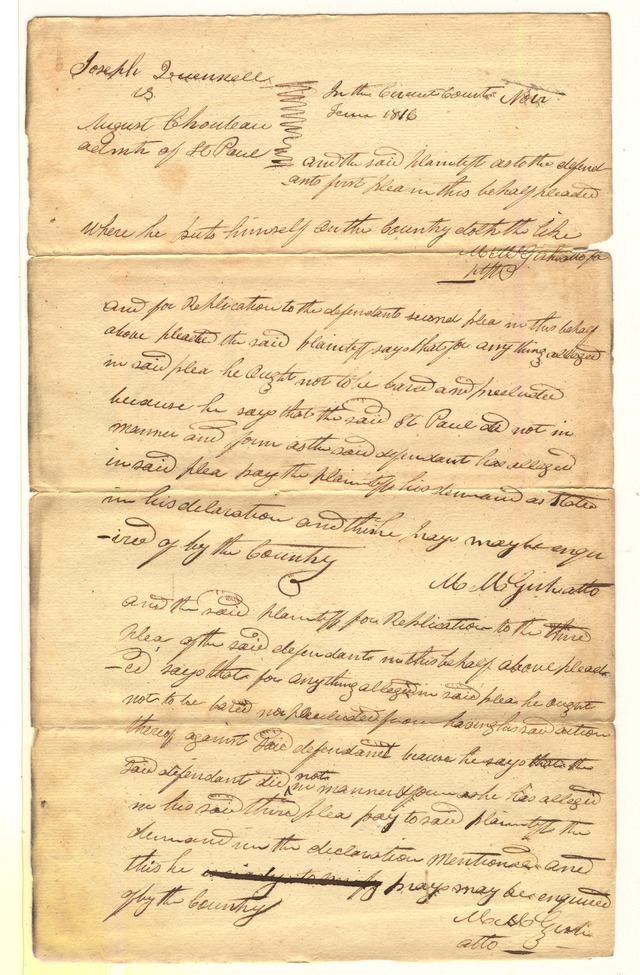 Joseph Quennell
vs
August Chouteau
admtr of St Paul
In the Circuit Court Nov.
Term 1816
and the said plaintiff as to the defend-
ants first plea in this behalf pleaded
Where he puts himself on the Country doth the like
M McGirk atto for
pltff
and for Replication to the defendants second plea in this behalf
above pleaded the said plaintiff says that for any thing alledged
in said plea he Ought not to be bared and precluded
because he says that the said St Paul did not in
manner and form as the said defendant has alledged
in said plea pay the plaintiff his demand as Stated
in his declaration and this he prays may be enqu
-ired of by the Country
M McGirk atto
and the said plaintiff for Replication to the third
plea of the said defendants in this behalf above plead-
-ed says that for anything alleged in said plea he ought
not to be bared nor precluded from having his said action
thereof against said defendant because he says that the
said defendant did not in manner & form as he has alledged
in his said third plea pay to said plaintiff the
demand in the declaration Mentioned and
this he prays may be enquired
of by the Country
M McGirk
atto